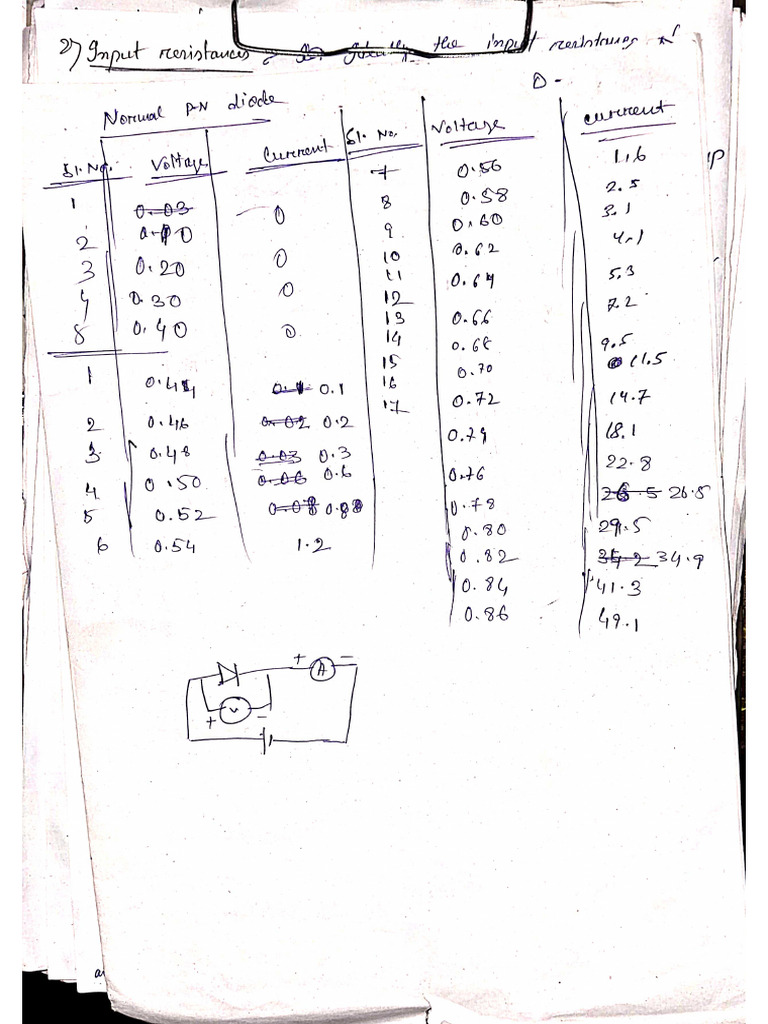 2) Input resistances - the input resistances
Normal P-N diode
Sl. No. Voltage Current
1 0.03 0
2 0.10
3 0.20 0
4 0.30 0
5 0.40 0
1 0.44 0.1 0.1
2 0.46 0.02 0.2
3 0.48 0.03 0.3
4 0.50 0.06 0.6
5 0.52 0.08
6 0.54 1.2
Sl. No. Voltage Current
7 0.56 1.6
8 0.58 2.5
9 0.60 3.1
10 0.62 4.1
11 0.64 5.3
12 7.2
13 0.66
14 0.68 9.5
15 0.70 11.5
16
17 0.72 14.7
0.74 18.1
0.76 22.8
0.78 26.5 26.5
0.80 29.5
0.82 34.2 34.9
0.84 41.3
0.86 49.1
+ A -
+ V -